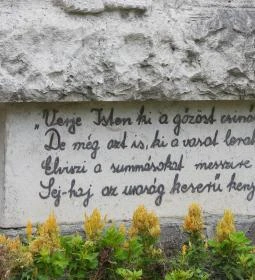 „Verje Isten ki a gőzöst csiná
De még azt is, ki a vasat lerak
Elviszi a summásokat messzire
Sej-haj az uraság keserű keny